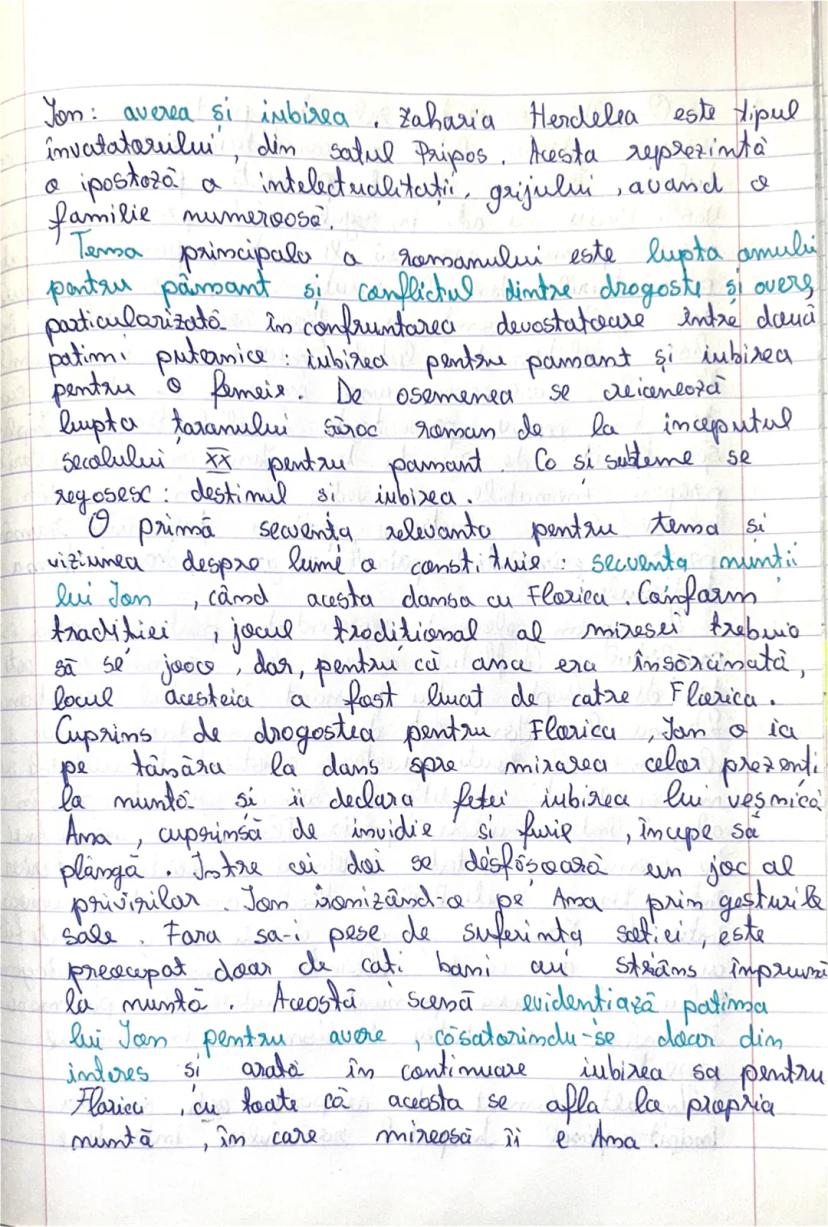 Ion: averea și iubirea. Zaharia Herdelea este tipul
învatatorului, din satul Pripos. Acesta reprezintă
o ipostază a intelectualitații, grijului, avand o
familie numeroasă.
Tema principala a romanului este lupta omului
pentru pământ și conflictul dintre drogoste și avere,
particularizată în confruntarea devastatoare între două
patimi puternice: iubirea pentru pamant și iubirea
pentru o femeie. De asemenea se creionează
lupta țaranului sărac roman de la inceputul
secolului XX pentru pamant. Ca si subteme se
regasesc: destinul si iubirea.
O primă secvența relevanta pentru tema si
viziunea despre lume o constituie: secventa nuntii
lui Ion, când acesta dansa cu Florica. Conform
tradiției, jocul tradițional al miresei trebuia
să se joace, dar, pentru că ana era însărcinată,
locul acesteia a fost luat de catre Florica.
Cuprins de drogostea pentru Florica, Ion o ia
pe tânăra la dans spre mirarea celor prezenți
la nuntă si îi declara fetei iubirea lui veșnică
Ana, cuprinsă de invidie si furie, începe să
plângă. Intre cei doi se desfășoară un joc al
privirilor. Ion ironizând-o pe Ana prin gesturile
sale. Fara sa-i pese de suferinta sotiei, este
preocupat doar de cați bani au strâns împreună
la nuntă. Aceastá scenă evidentiază patima
lui Ion pentru avere, căsatorindu-se doar din
interes si arată în continuare iubirea sa pentru
Florica, cu toate că aceasta se afla la propria
nuntă, în care mireasă îi e Ana.